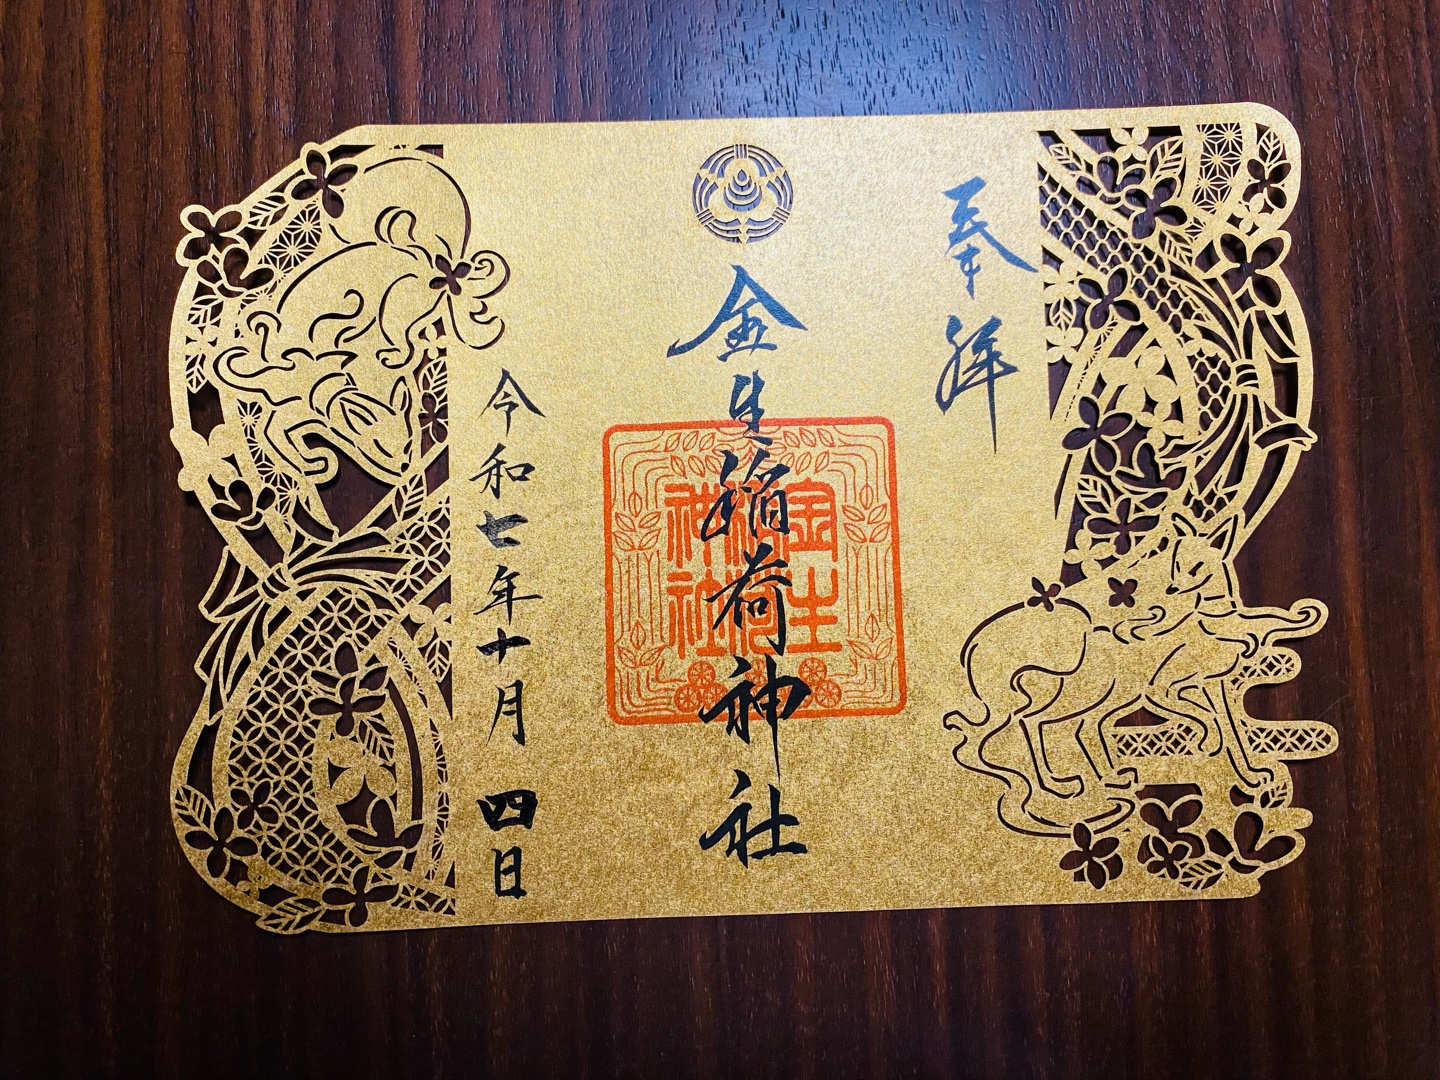 奉拝
金生稲荷神社
金生稲荷神社
令和七年十月四日